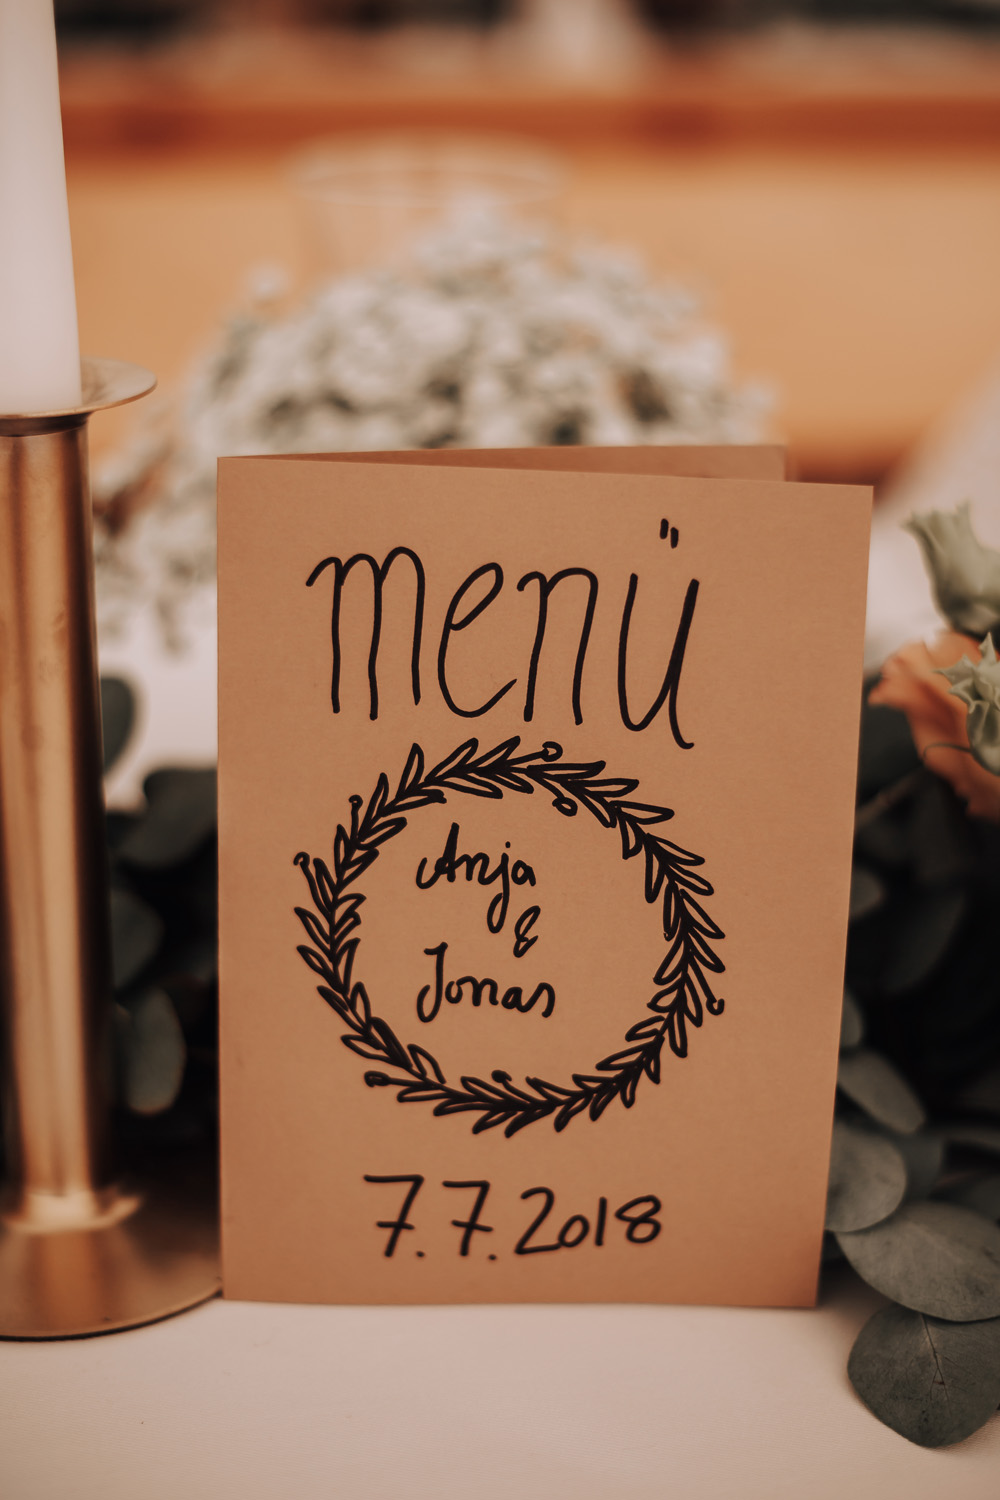 menü
Anja
&
Jonas
7.7.2018